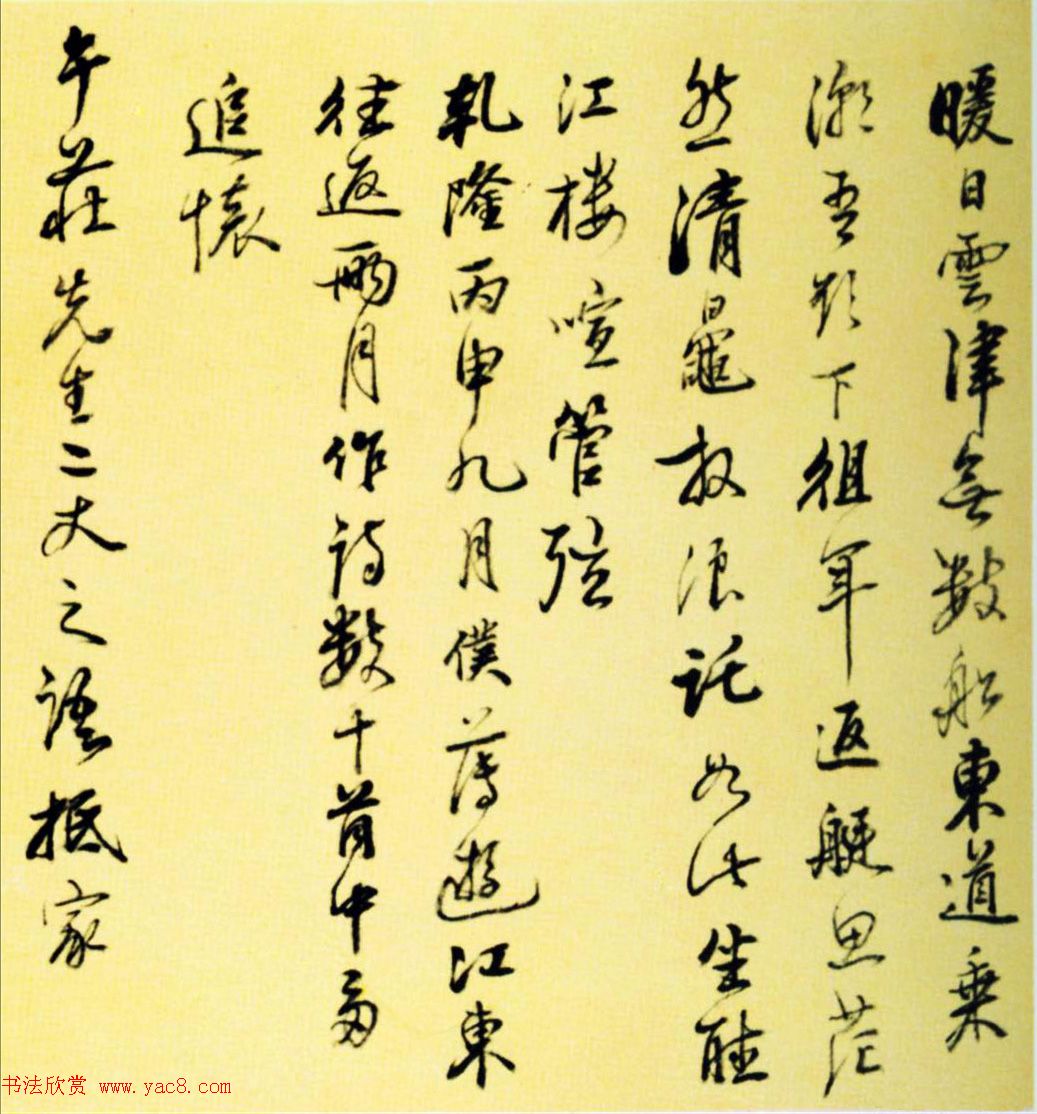 暖日雲津無數船東道乘
潮吾欲下徂年返艇思茫
然清鼂放浪託如此坐聽
江樓喧管弦
乹隆丙申九月僕薄遊江東
往返兩月作詩數十首中多
追懷
午莊先生二丈之語抵家
书法欣赏 www.yac8.com